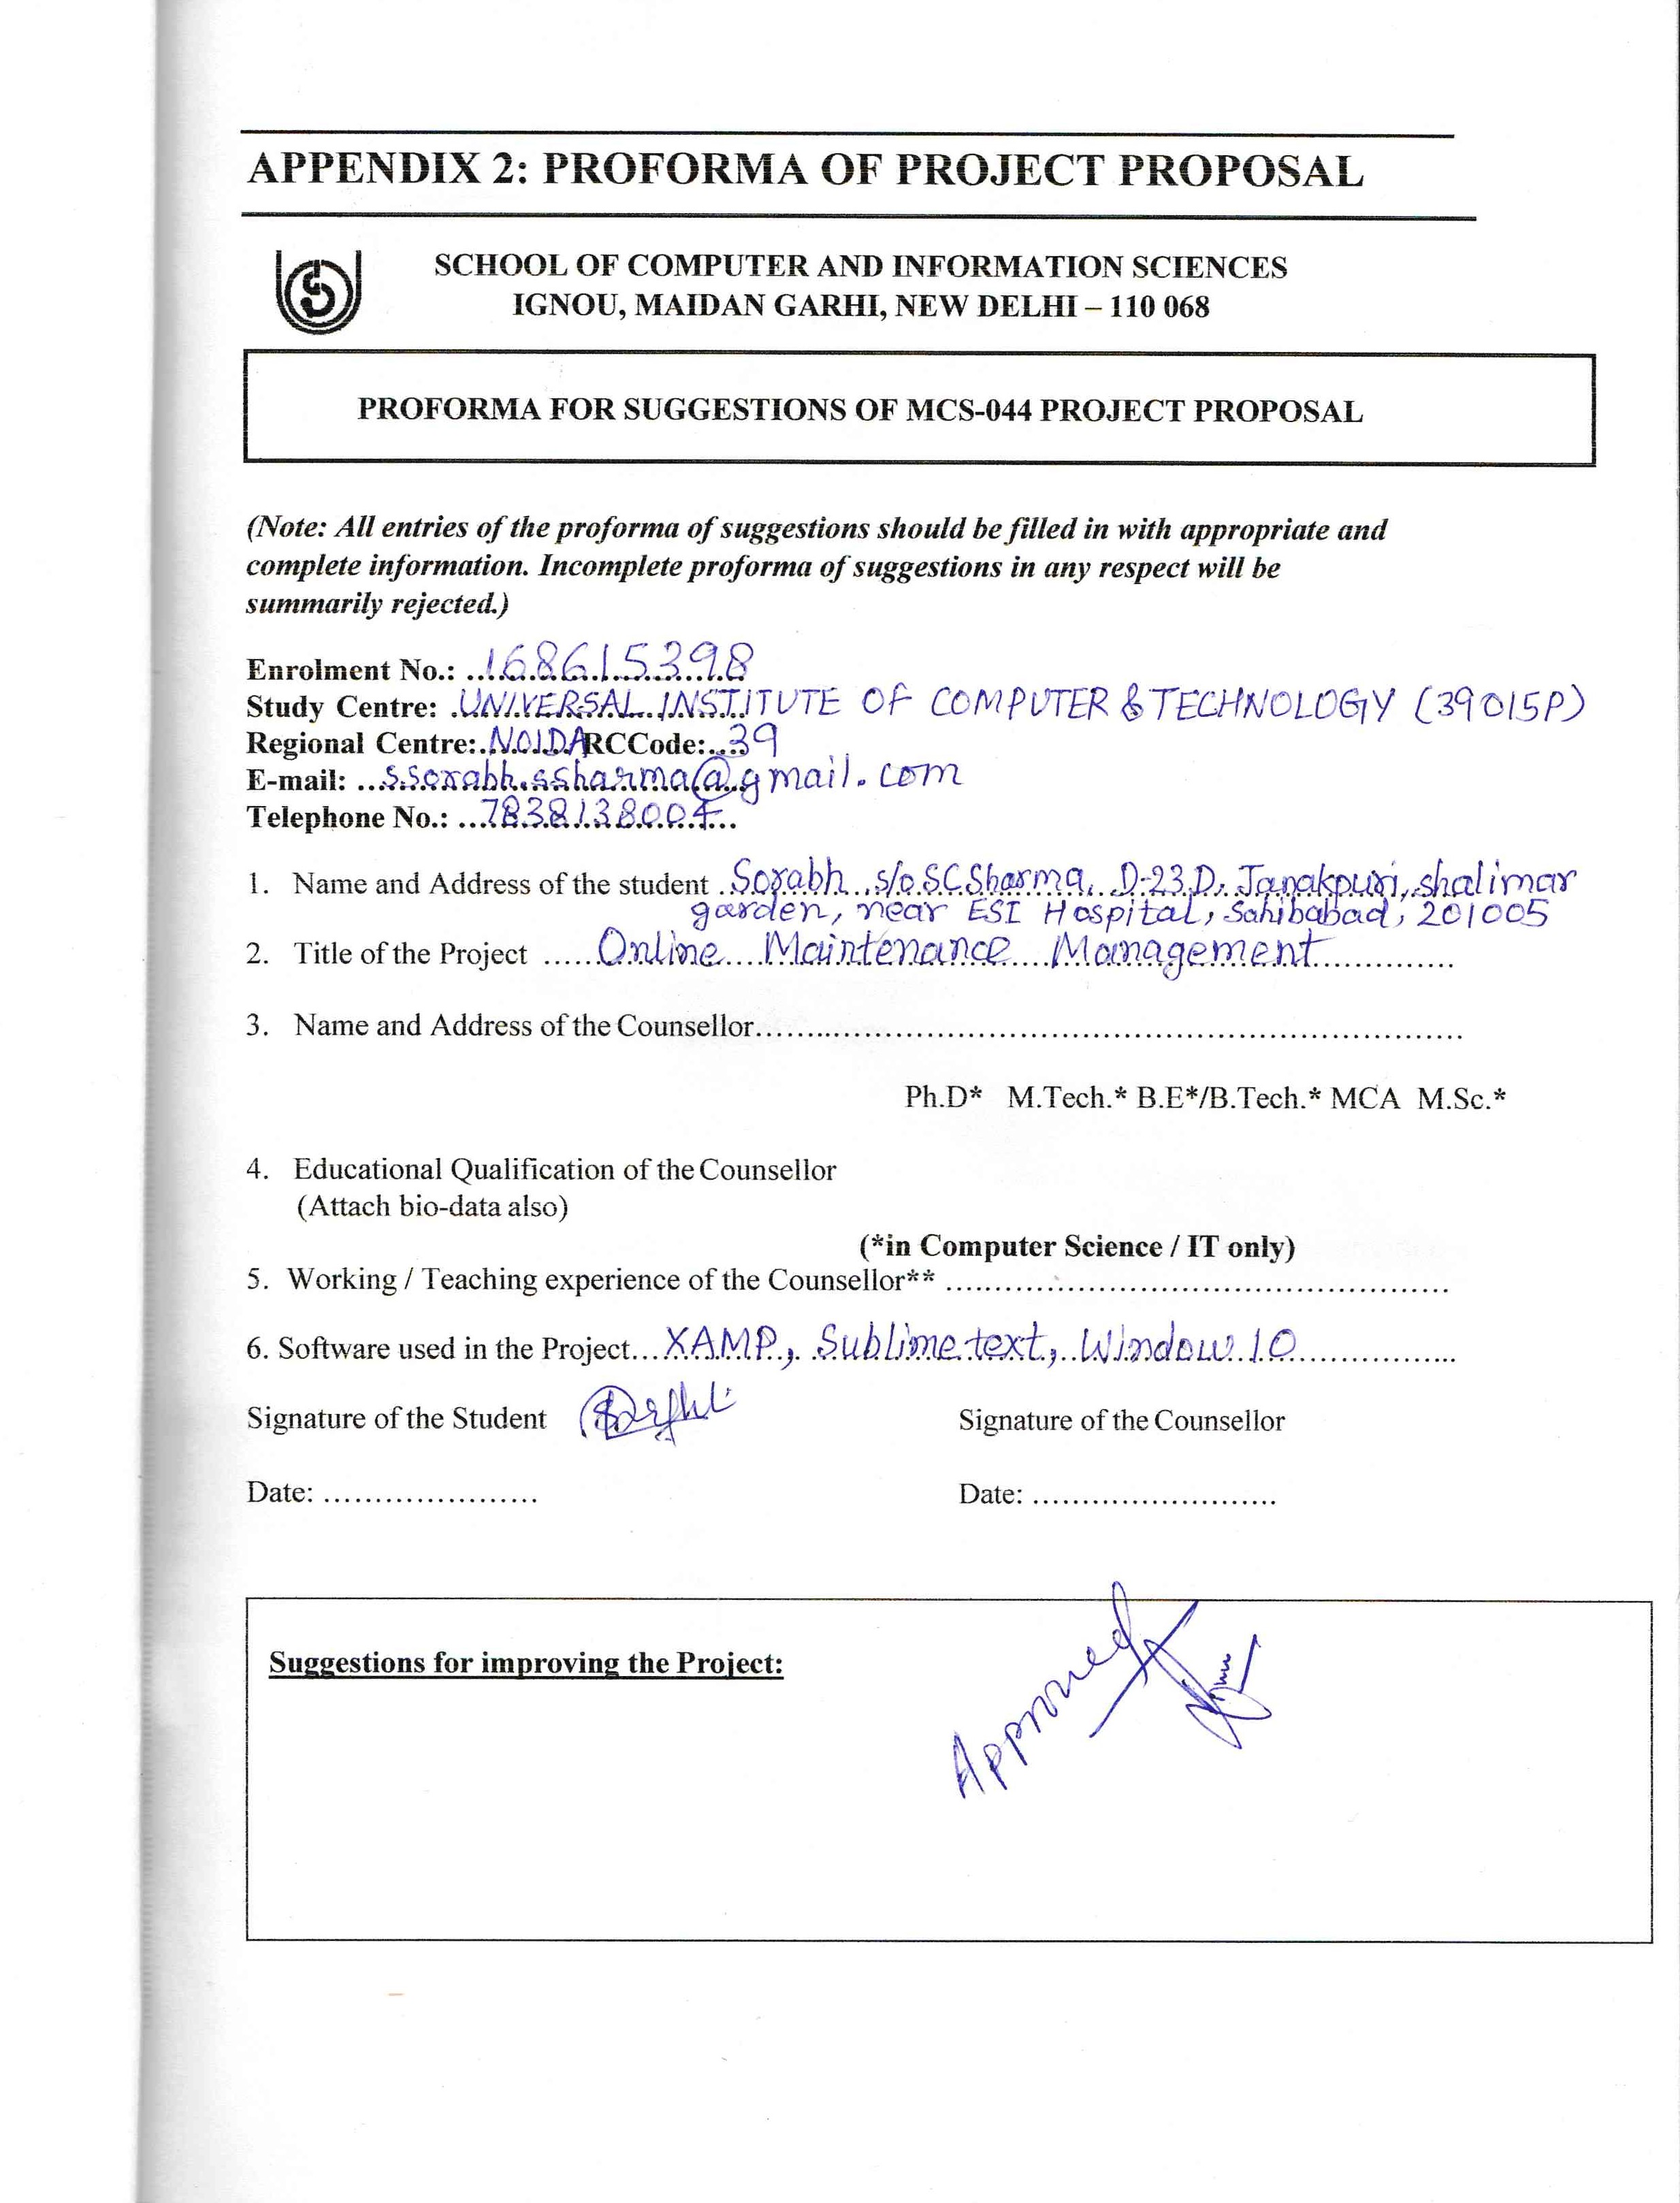 APPENDIX 2: PROFORMA OF PROJECT PROPOSAL
SCHOOL OF COMPUTER AND INFORMATION SCIENCES
IGNOU, MAIDAN GARHI, NEW DELHI – 110 068
PROFORMA FOR SUGGESTIONS OF MCS-044 PROJECT PROPOSAL
(Note: All entries of the proforma of suggestions should be filled in with appropriate and
complete information. Incomplete proforma of suggestions in any respect will be
summarily rejected.)
Enrolment No.: 168615398
Study Centre: UNIVERSAL INSTITUTE OF COMPUTER & TECHNOLOGY (39015P)
Regional Centre: NOIDA RCCode: 39
E-mail: s.sorabh.ssharma@gmail.com
Telephone No.: 7838138004
1. Name and Address of the student Sorabh s/o SC Sharma, D-23D, Janakpuri, shalimar
garden, near ESI Hospital, Sahibabad, 201005
2. Title of the Project Online Maintenance Management
3. Name and Address of the Counsellor
Ph.D* M.Tech.* B.E*/B.Tech.* MCA M.Sc.*
4. Educational Qualification of the Counsellor
(Attach bio-data also)
(*in Computer Science / IT only)
5. Working / Teaching experience of the Counsellor**
6. Software used in the Project XAMP, Sublime text, Window 10
Signature of the Student Signature of the Counsellor
Date: Date:
Suggestions for improving the Project:
Approved